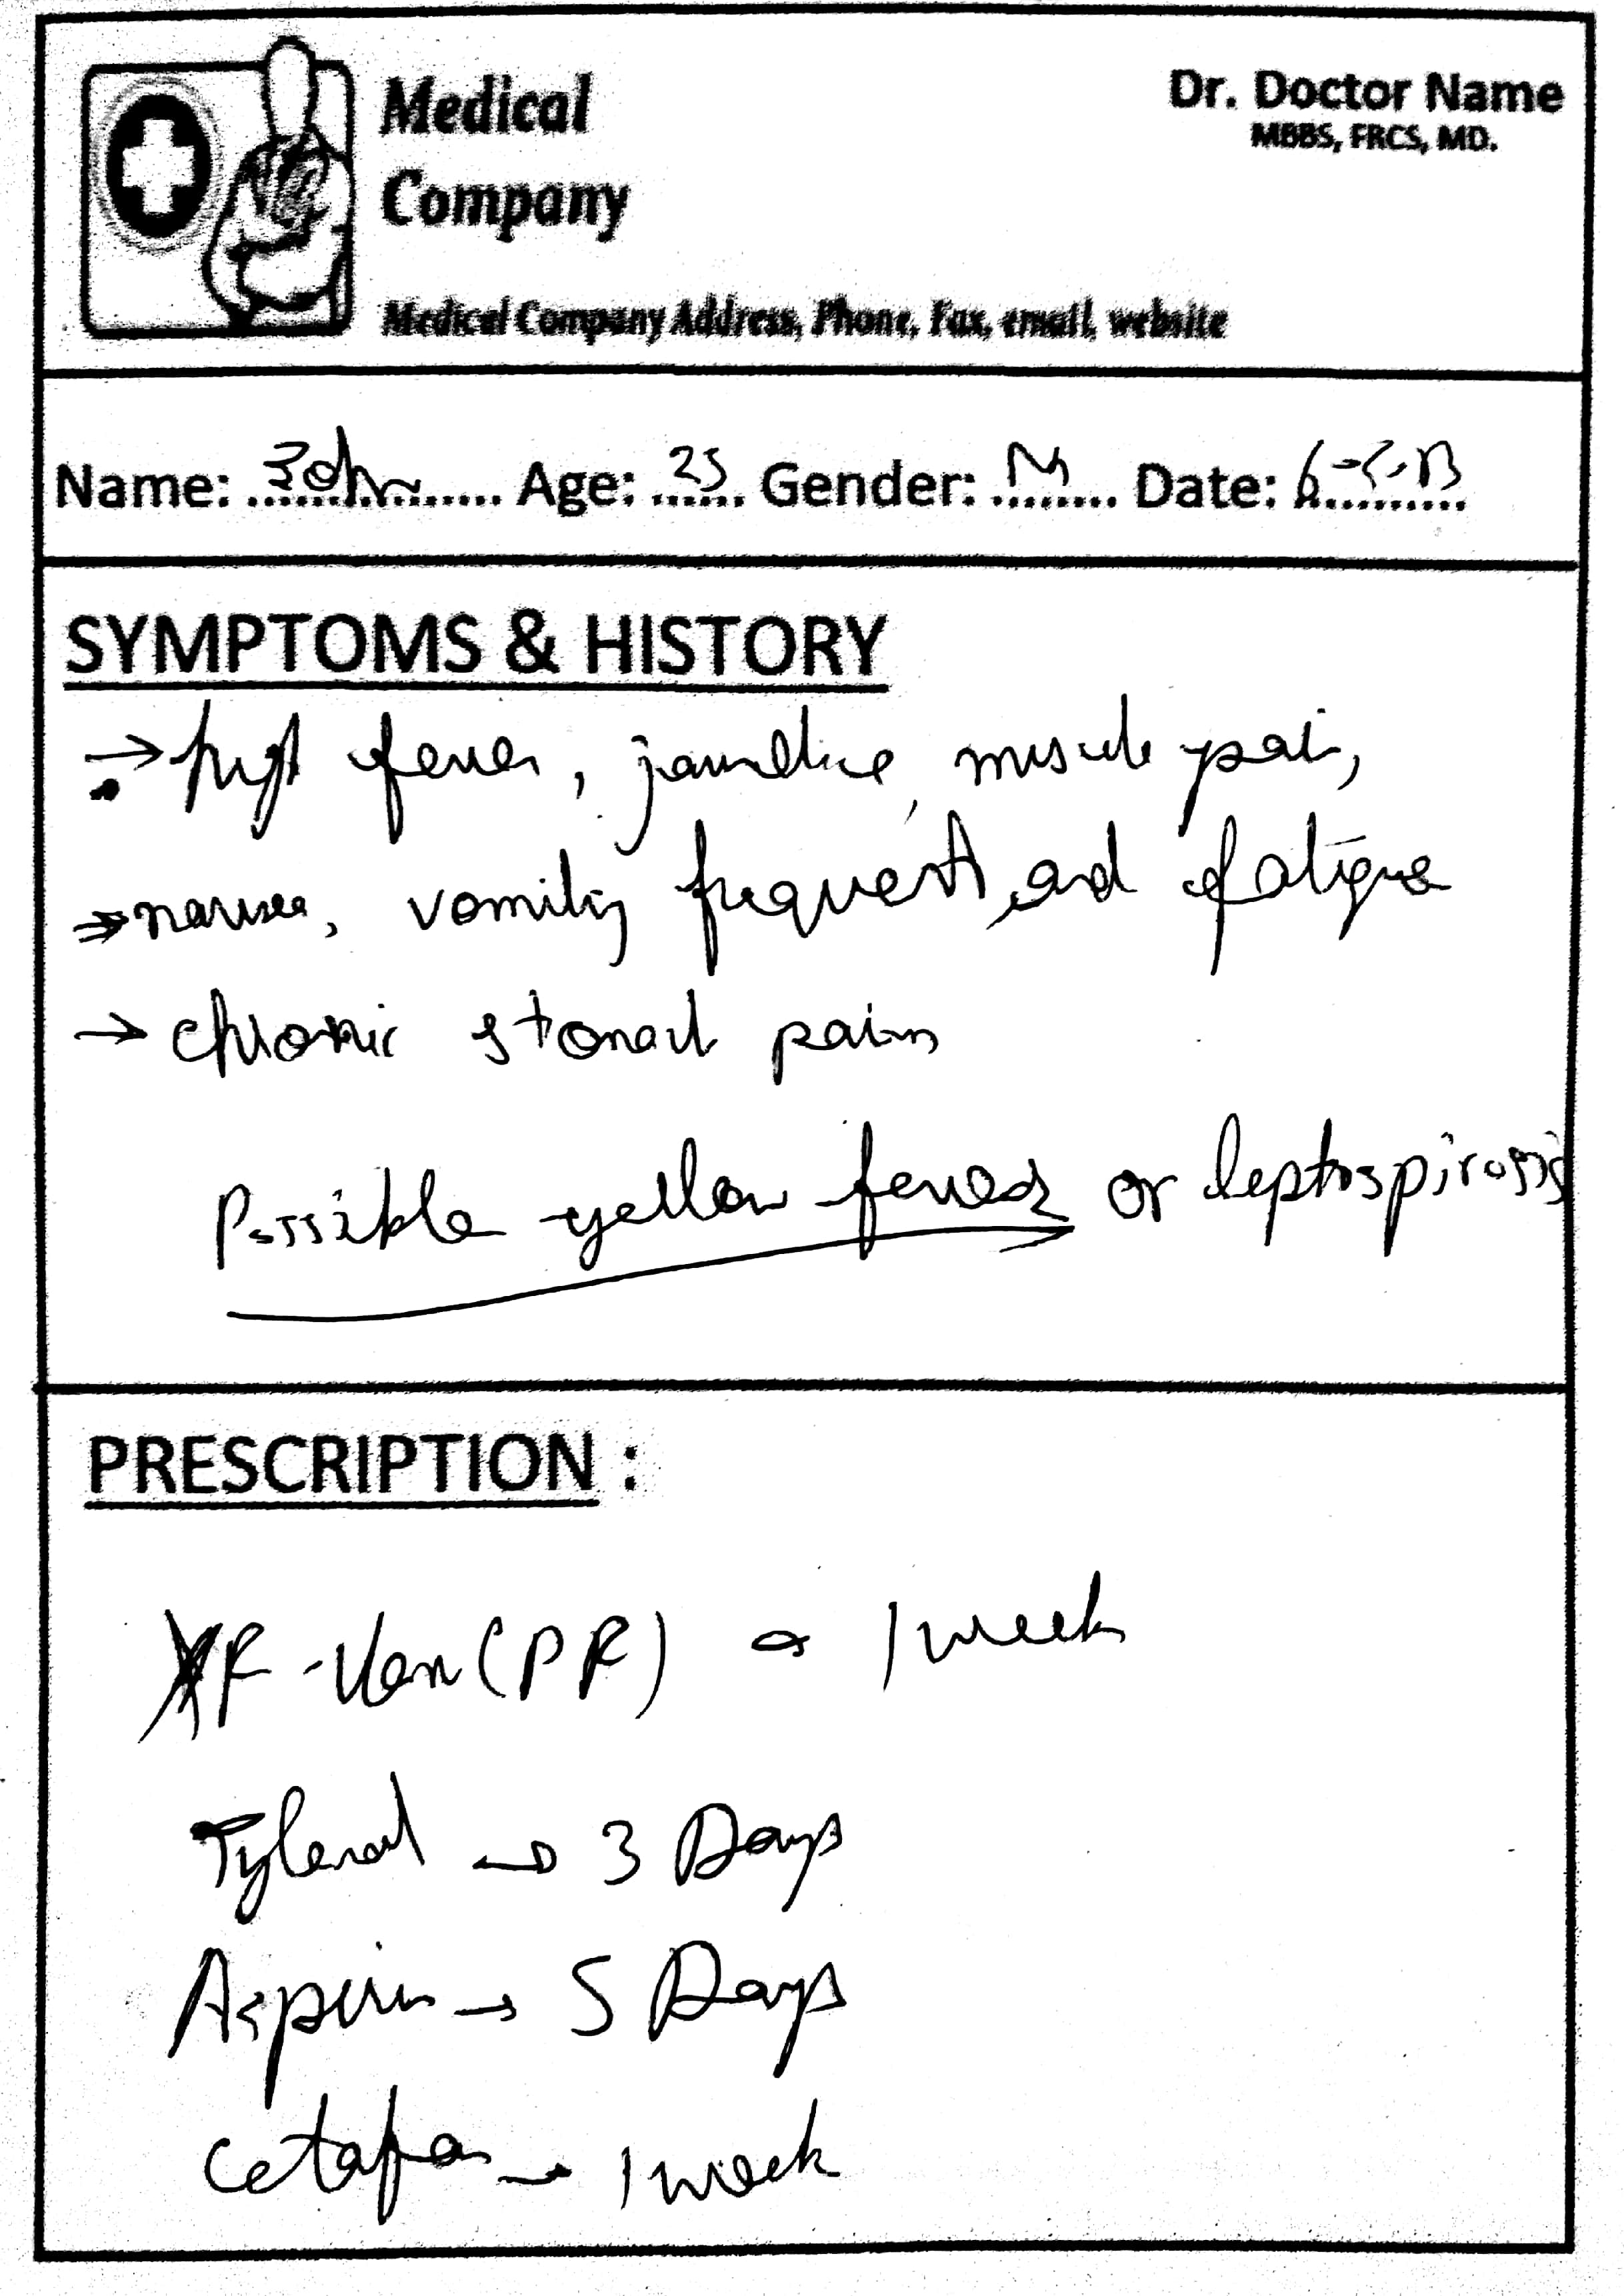 Medical
Company
Dr. Doctor Name
MBBS, FRCS, MD.
Medical Company Address, Phone, Fax, email, website
Name: John Age: 25 Gender: M Date:
SYMPTOMS & HISTORY
→ high fever, jaundice, muscle pain,
→ nausea, vomiting frequent, and fatigue
→ chronic stomach pain
Possible yellow fever or leptospirosis
PRESCRIPTION :
(PR) → 1 week
Tylenol → 3 Days
Aspirin → 5 Days
→ 1 week